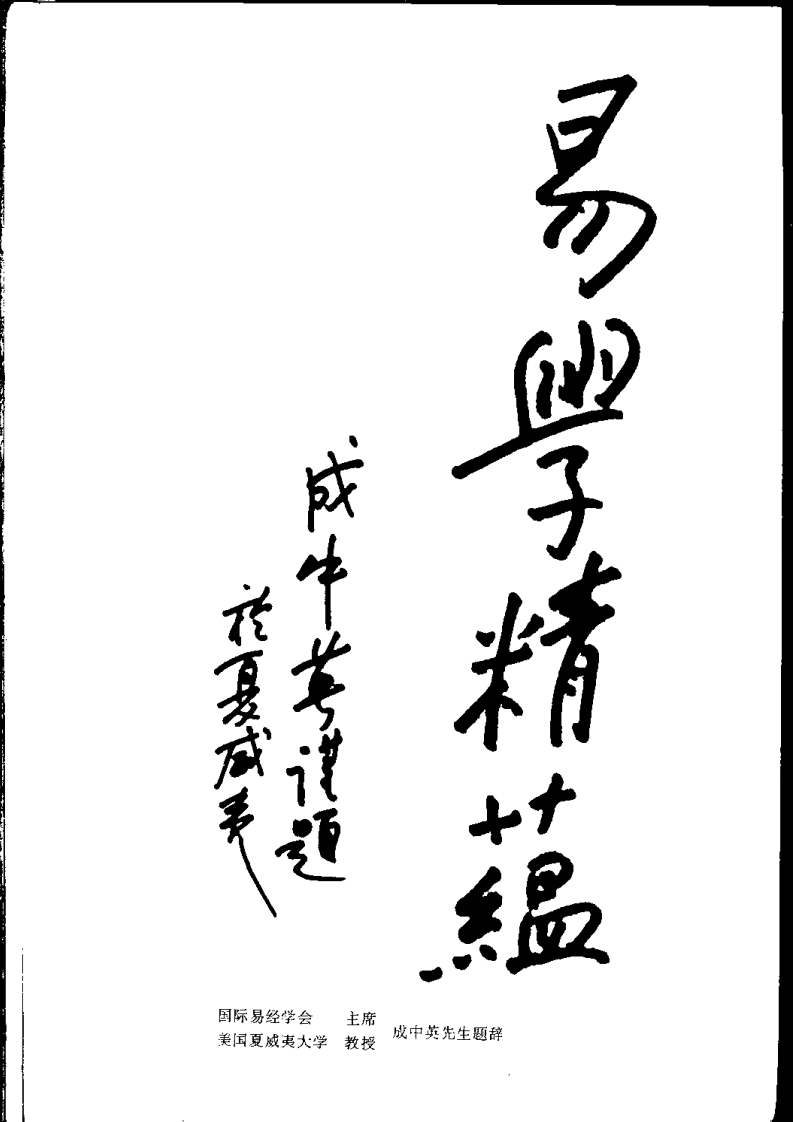 易學精蘊
成中英謹題
於夏威夷
国际易经学会 主席
美国夏威夷大学 教授
成中英先生题辞